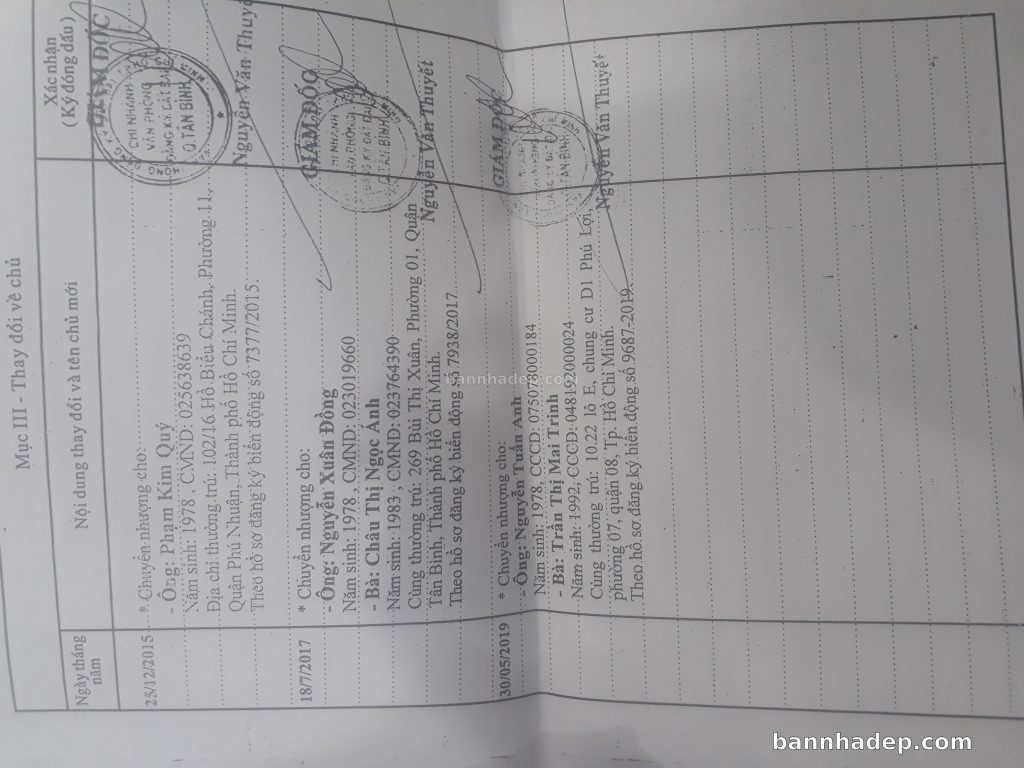 Mục III - Thay đổi về chủ
Ngày tháng năm
Nội dung thay đổi và tên chủ mới
Xác nhận
(Ký đóng dấu)
25/12/2015
* Chuyển nhượng cho:
- Ông: Phạm Kim Quý
Năm sinh: 1978 , CMND: 025638639
Địa chỉ thường trú: 102/16 Hồ Biểu Chánh, Phường 11,
Quận Phú Nhuận, Thành phố Hồ Chí Minh.
Theo hồ sơ đăng ký biến động số 7377/2015.
GIÁM ĐỐC
CHI NHÁNH
VĂN PHÒNG
ĐĂNG KÝ ĐẤT ĐAI
Q.TÂN BÌNH
Nguyễn Văn Thuyết
18/7/2017
* Chuyển nhượng cho:
- Ông: Nguyễn Xuân Đồng
Năm sinh: 1978 , CMND: 023019660
- Bà: Châu Thị Ngọc Ánh
Năm sinh: 1983 ; CMND: 023764390
Cùng thường trú: 269 Bùi Thị Xuân, Phường 01, Quận
Tân Bình, Thành phố Hồ Chí Minh.
Theo hồ sơ đăng ký biến động số 7938/2017
GIÁM ĐỐC
Nguyễn Văn Thuyết
30/05/2019
* Chuyển nhượng cho:
- Ông: Nguyễn Tuấn Anh
Năm sinh: 1978, CCCD: 075078000184
- Bà: Trần Thị Mai Trinh
Năm sinh: 1992, CCCD: 048192000024
Cùng thường trú: 10.22 lô E, chung cư D1 Phú Lợi,
phường 07, quận 08, Tp. Hồ Chí Minh.
Theo hồ sơ đăng ký biến động số 9687.2019.
GIÁM ĐỐC
Nguyễn Văn Thuyết
bannhadep.com
bannhadep.com